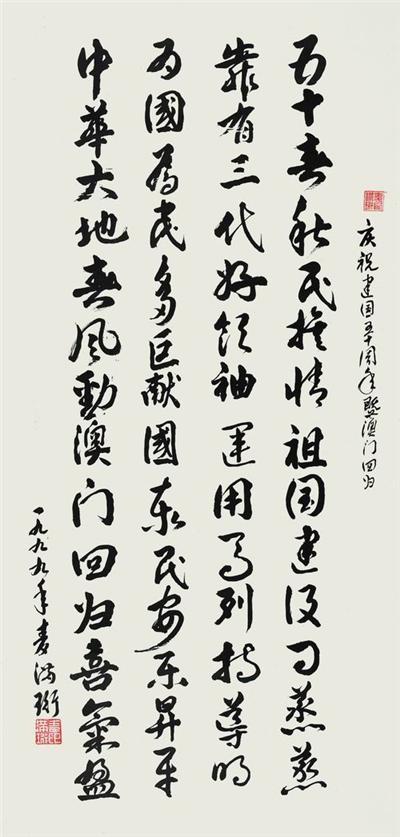 庆祝建国五十周年暨澳门回归
五十春秋民族情祖国建设日蒸蒸
靠有三代好领袖運用马列指導明
为國為民多巨献國泰民安乐昇平
中華大地春风動澳门回归喜氣盈
一九九九年